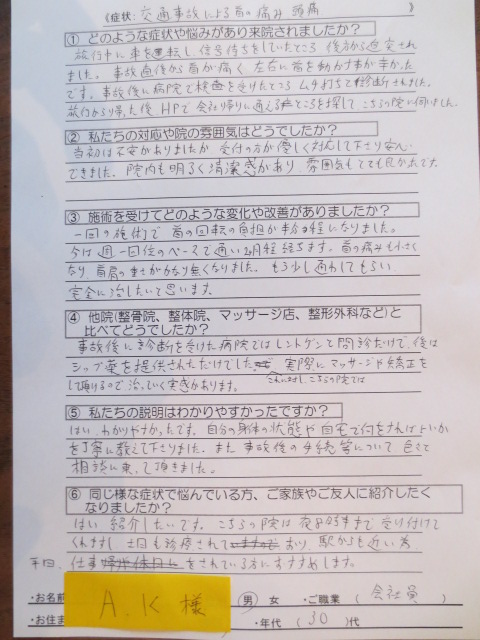 《症状: 交通事故による首の痛み 頭痛 》
① どのような症状や悩みがあり来院されましたか？
旅行中に車を運転し、信号待ちをしていたところ 後方から追突され
ました。事故直後から首が痛く 左右に首を動かす事が辛かった
です。事故後に病院で検査を受けたところ ムチ打ちと診断されました。
旅行から帰った後、HPで会社帰りに通えるところを探して こちらの院に伺いました。
② 私たちの対応や院の雰囲気はどうでしたか？
当初は不安がありましたが 受付の方が優しく対応して下さり 安心
できました。院内も明るく清潔感があり、雰囲気もとても良かったです。
③ 施術を受けてどのような変化や改善がありましたか？
一回の施術で 首の回転の負担が半分程になりました。
今は週一回位のペースで通い 月程経ちます。首の痛みも小さく
なり、首肩のまで かなり無くなりました。もう少し通わしてもらい
完全に治したいと思います。
④ 他院(整骨院、整体院、マッサージ店、整形外科など)と
比べてどうでしたか？
事故後に診断を受けた病院ではレントゲンと問診だけで、後は
シップ薬を提供されただけでした 実際にマッサージや矯正を
これに対し こちらの院では
して頂けるので 治っていく実感があります。
⑤ 私たちの説明はわかりやすかったですか？
はい わかりやすかったです。自分の身体の状態や 自宅で何をすればよいか
を丁寧に教えて下さりました。また 事故後の手続等について 色々と
相談に乗って頂きました。
⑥ 同じ様な症状で悩んでいる方、ご家族やご友人に紹介したく
なりましたか？
はい 紹介したいです。こちらの院は 夜 時まで 受け付けて
くれますし 土日も診療されて おり、駅からも近い為
平日、仕事 をされている方にもすすめします。
・お名前 A.K 様 男 女 ・ご職業 ( 会社員 )
・お住ま ・年代 ( 30 )代